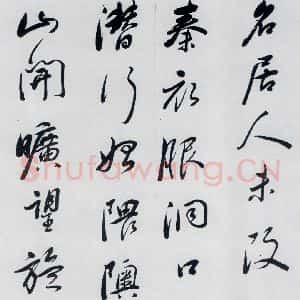 名居人未改
秦衣服洞口
潛行始隈隩
山開曠望旋
Shufawang.CN